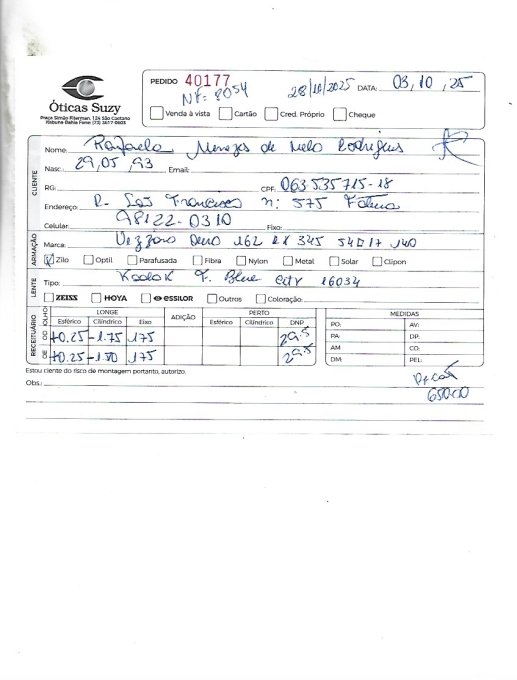 PEDIDO 40177
NF: 8054
28/10/2025 DATA: 03, 10, 25
Óticas Suzy
Praça Simão Fiterman, 124 São Caetano
Itabuna-Bahia Fone: (73) 3617-0603
Venda à vista Cartão Cred. Próprio Cheque
CLIENTE
Nome: Rafaela Menezes de Melo Rodrigues
Nasc: 29, 05, 93 Email:
RG: CPF: 063.535715-18
Endereço: R- São Francisco n: 575 Fátima
Celular: 98122-0310 Fixo:
ARMAÇÃO
Marca: 162 345 54017 140
Zilo Optil Parafusada Fibra Nylon Metal Solar Clipon
LENTE
Tipo: Kodok F. Blue City 16034
ZEISS HOYA essilor Outros Coloração:
RECEITUÁRIO
OLHO LONGE ADIÇÃO PERTO MEDIDAS
Esférico Cilíndrico Eixo Esférico Cilíndrico DNP
OD +0.25 -1.75 175 29.5
OE +0.25 -1.50 175 29.5
PO: AV:
PA: DP:
AM CO:
DM: PEL:
Estou ciente do risco de montagem portanto, autorizo.
Obs.:
650.00